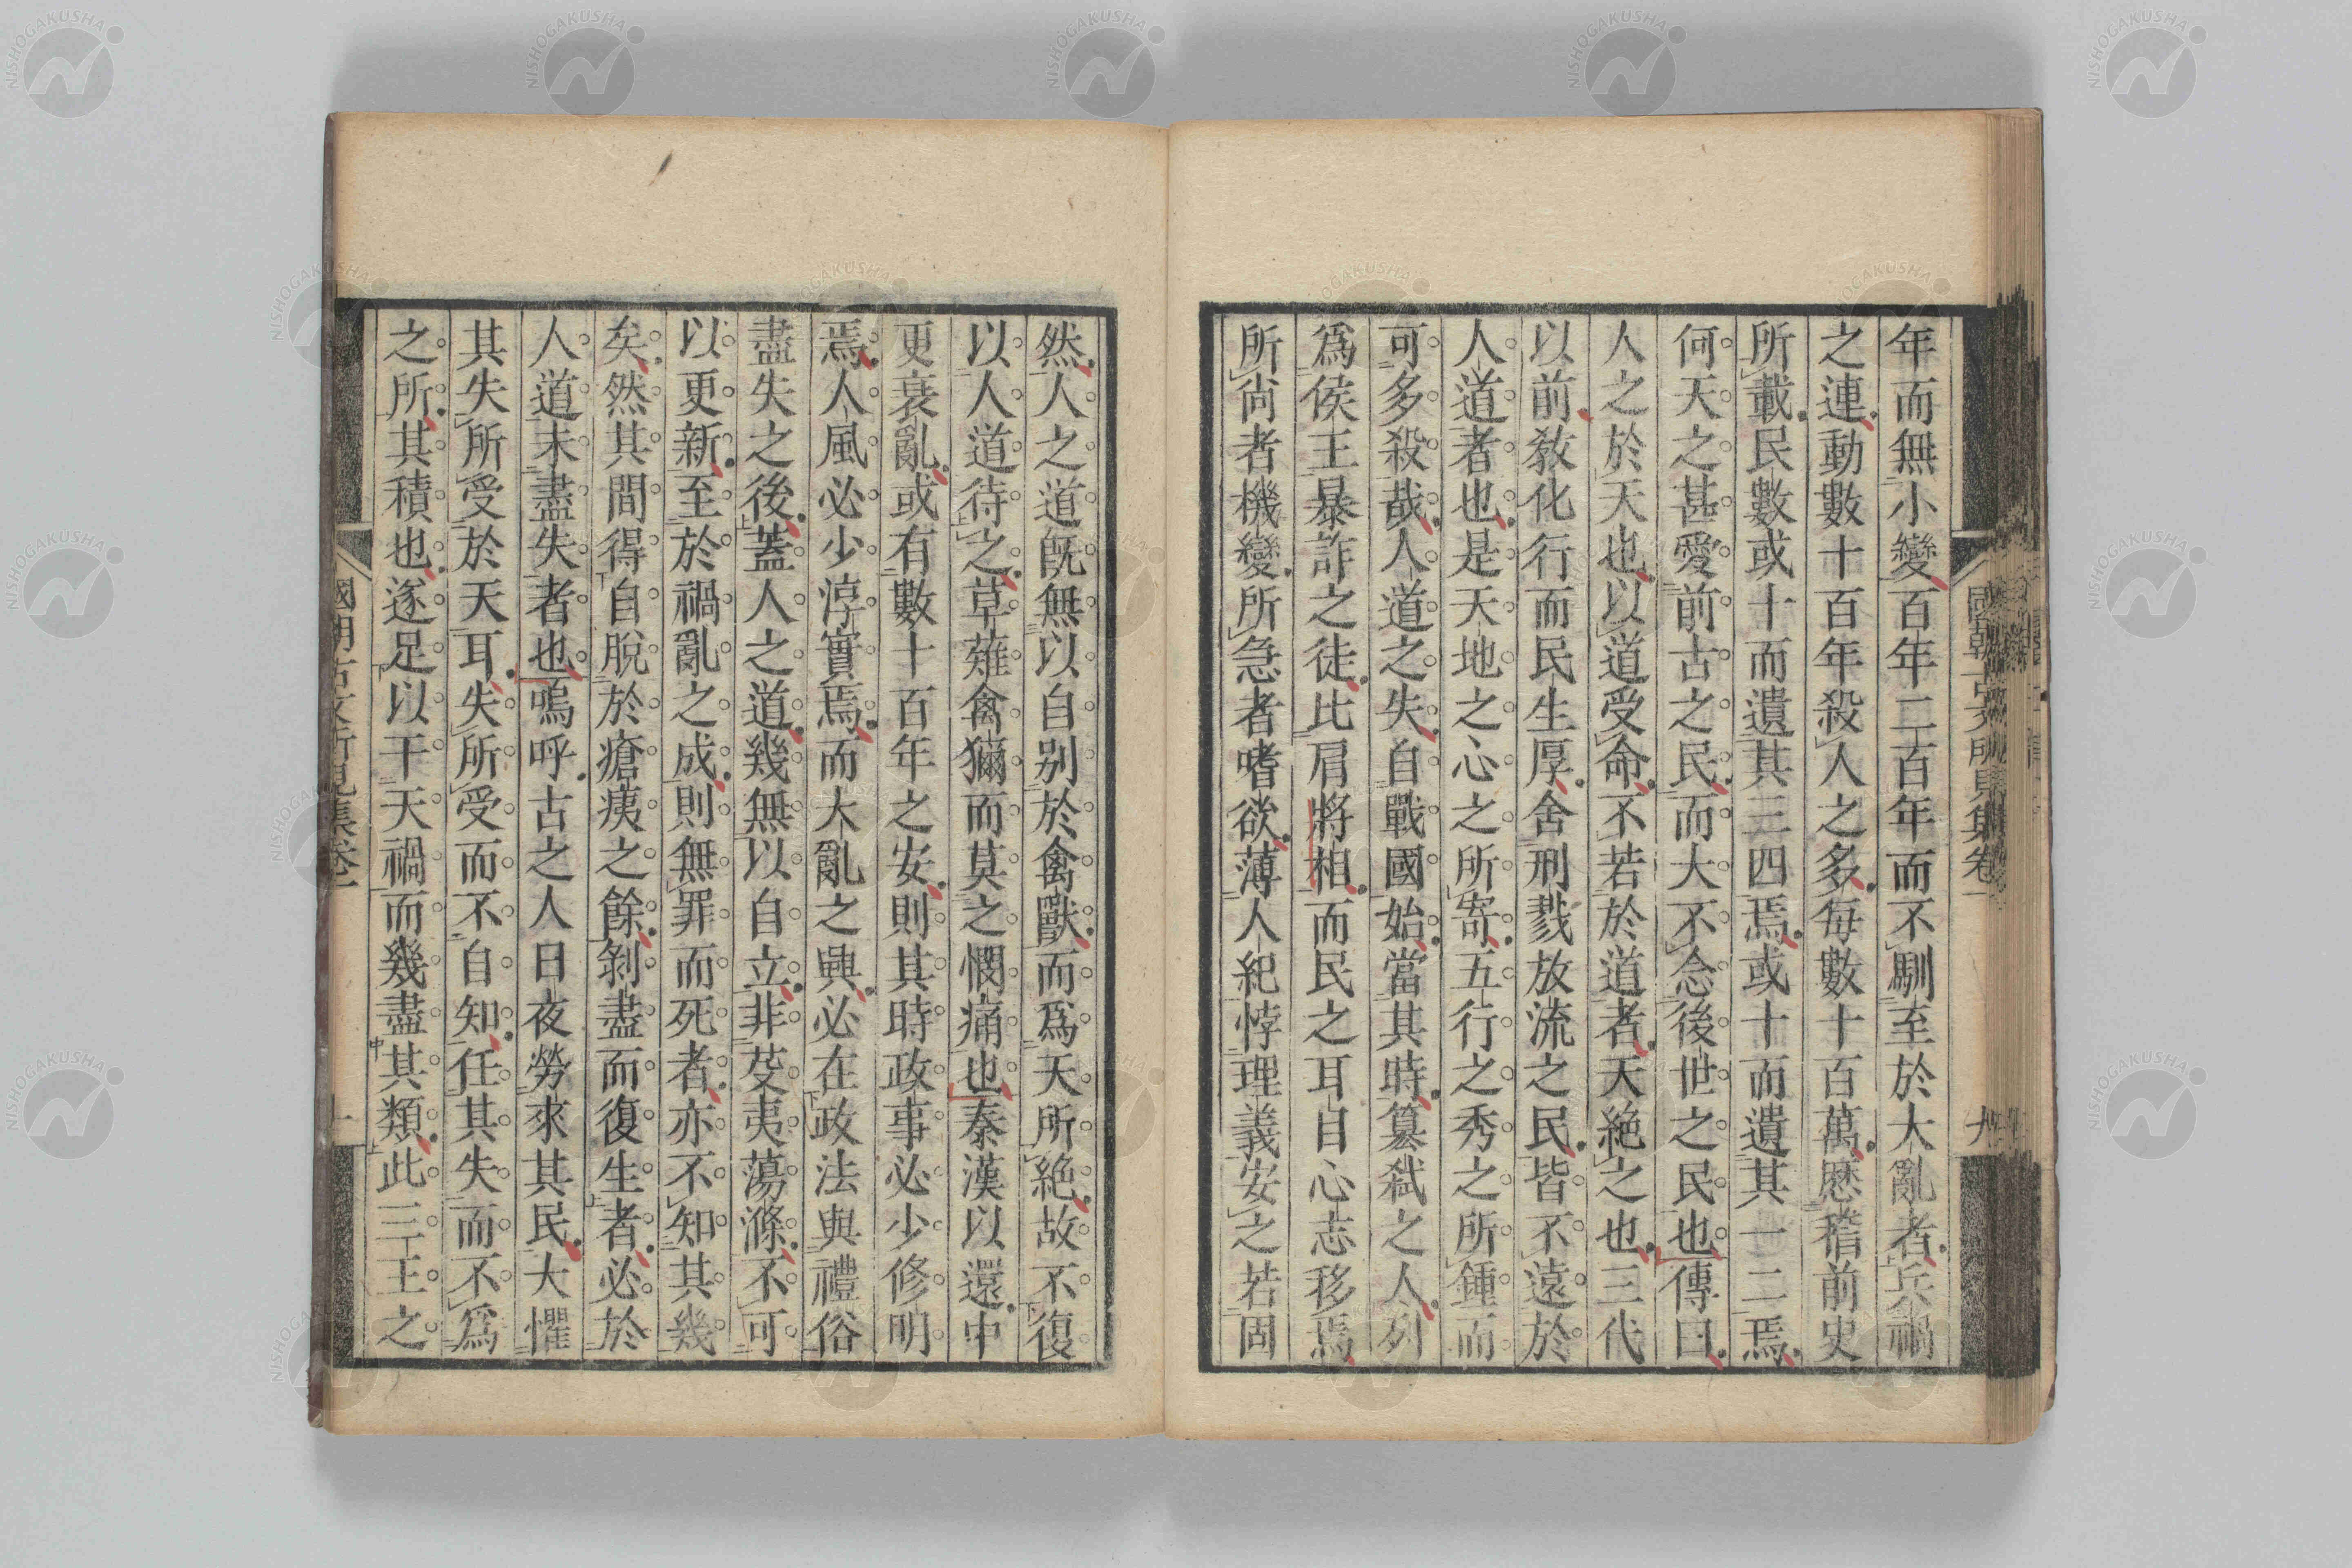 年而無小變百年二百年而不馴至於大亂者兵禍
之連動數十百年殺人之多每數十百萬歷稽前史
所載民數或十而遺其三四焉或十而遺其一二焉
何天之甚愛前古之民而大不念後世之民也傳曰
人之於天也以道受命不若於道者天絕之也三代
以前敎化行而民生厚舍刑戮放流之民皆不遠於
人道者也是天地之心之所寄五行之秀之所鍾而
可多殺哉人道之失自戰國始當其時篡弑之人列
爲侯王暴詐之徒比肩將相而民之耳目心志移焉
所尚者機變所急者嗜欲薄人紀悖理義安之若固
國朝古文所見集卷一
九
然人之道旣無以自别於禽獸而爲天所絕故不復
以人道待之草薙禽獮而莫之憫痛也秦漢以還中
更衰亂或有數十百年之安則其時政事必少修明
焉人風必少淳實焉而大亂之興必在政法與禮俗
盡失之後蓋人之道幾無以自立非芟夷蕩滌不可
以更新至於禍亂之成則無罪而死者亦不知其幾
矣然其間得自脫於瘡痍之餘剝盡而復生者必於
人道未盡失者也嗚呼古之人日夜勞來其民大懼
其失所受於天耳失所受而不自知任其失而不爲
之所其積也遂足以干天禍而幾盡其類此三王之
國朝古文所見集卷一
NISHOGAKUSHA